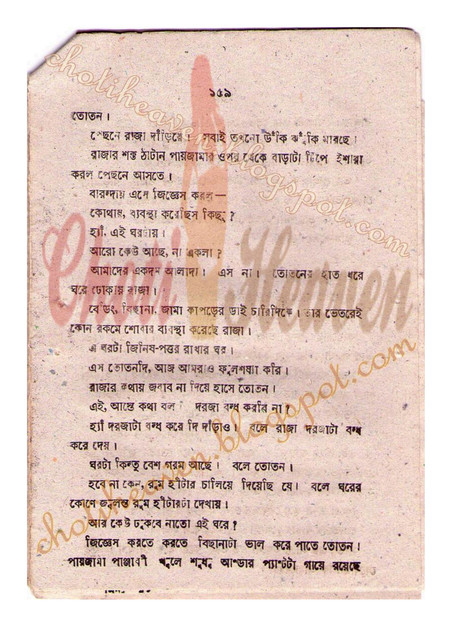 ১৫৯
তোতন।
পেছনে রাজা দাঁড়িয়ে। সবাই তখনো উঁকি ঝুঁকি মারছে।
রাজার শক্ত ঠাটান পায়জামার ওপর থেকে বাড়াটা টিপে ইশারা
করল পেছনে আসতে।
বারান্দায় এসে জিজ্ঞেস করল—
কোথায়, ব্যবস্থা করেছিস কিছু?
হ্যাঁ, এই ঘরটায়।
আরো কেউ আছে, না একলা?
আমাদের একদম আলাদা। এস না। তোতনের হাত ধরে
ঘরে ঢোকায় রাজা।
বেডিং, বিছানা, জামা কাপড়ের ডাই চারিদিকে। তার ভেতরেই
কোন রকমে শোবার ব্যবস্থা করেছে রাজা।
এ ঘরটা জিনিষ-পত্তর রাখার ঘর।
এস তোতনদি, আজ আমরাও ফুলশয্যা করি।
রাজার কথায় জবাব না দিয়ে হাসে তোতন।
এই, আস্তে কথা বল। দরজা বন্ধ করবি না?
হ্যাঁ দরজাটা বন্ধ করে দি দাঁড়াও। বলে রাজা দরজাটা বন্ধ
করে দেয়।
ঘরটা কিন্তু বেশ গরম আছে। বলে তোতন।
হবে না কেন, রুম হীটার চালিয়ে দিয়েছি যে। বলে ঘরের
কোণে জ্বলন্ত রুম হীটারটা দেখায়।
আর কেউ ঢুকবে নাতো এই ঘরে?
জিজ্ঞেস করতে করতে বিছানাটা ভাল করে পাতে তোতন।
পায়জামা পাঞ্জাবী খুলে শুধু আন্ডার প্যান্টটা গায়ে রয়েছে
Choti Heaven
chotiheaven.blogspot.com
chotiheaven.blogspot.com